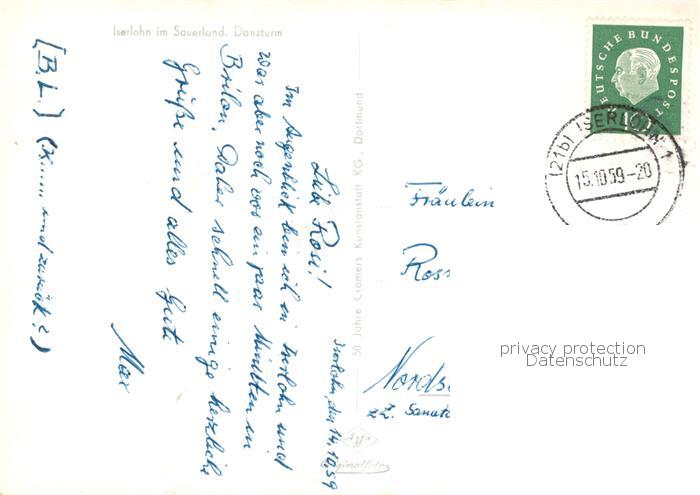 Iserlohn im Sauerland. Danzturm
Iserlohn, den 14.10.59
Liebe Rosi!
Im Augenblick bin ich in Iserlohn und
war aber noch vor ein paar Minuten in
Brilon. Daher schnell einige herzliche
Grüße und alles Gute
Max
[B.L.] ( und zurück?)
50 Jahre Cramers Kunstanstalt KG., Dortmund
Agfa
Originalfoto
DEUTSCHE BUNDESPOST
10
(21b) ISERLOHN 1
15.10.59-20
Fräulein
Ross
Nords
zZ. Sanat
privacy protection
Datenschutz